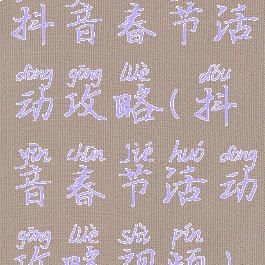 抖音春节活
dòng gōng lüè dǒu
动攻略(抖
yīn chūn jié huó dòng
音春节活动
gōng lüè shì pín
攻略视频)